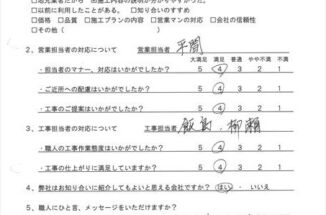 □地元業者だから □施工内容の説明が分かりやすかった。
□以前に利用したことがある。 □知り合いのすすめ
□価格 □品質 □施工プランの内容 □営業マンの対応 □会社の信頼性
□その他( )
2、営業担当者の対応について 営業担当者 平間
大満足 満足 普通 やや不満 不満
・担当者のマナー、対応はいかがでしたか? 5 4 3 2 1
・ご近所への配慮はいかがでしたか? 5 4 3 2 1
・工事のご提案はいかがでしたか? 5 4 3 2 1
3、工事担当者の対応について 工事担当者 飯島・柳瀬
・職人の工事作業態度はいかがでしたか? 5 4 3 2 1
・工事の仕上がりに満足していますか? 5 4 3 2 1
4、弊社はお知り合いに紹介してもよいと思える会社ですか? はい ・ いいえ
5、職人にひと言、メッセージをいただけますか?